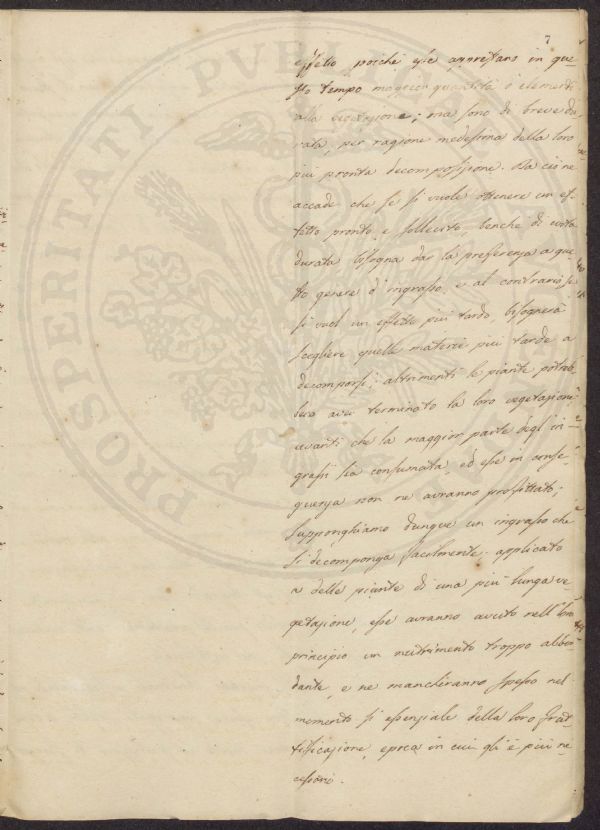 7
effetto poiché esse apprestano in que-
sto tempo maggior quantità d'elementi
alla vegetazione; ma sono di breve du-
rata, per ragione medesima della loro
più pronta decomposizione. Da ciò ne
accade che se si vuole ottenere un ef-
fetto pronto, e sollecito benche di corta
durata bisogna dar la preferenza a que-
sto genere d'ingrasso, e al contrario se
si vuol un effetto più tardo, bisognerà
scegliere quelle materie più tarde a
decomporsi; altrimenti le piante potreb-
bero aver terminato la loro vegetazione
avanti che la maggior parte degl'in-
grassi sia consumata, ed esse in conse-
guenza non ne avranno profittato;
supponghiamo dunque un ingrasso che
si decomponga facilmente applicato
a delle piante di una più lunga ve-
getazione, esse avranno avuto nell'loro
principio un nutrimento troppo abbon-
dante, e ne mancheranno spesso nel
momento sì essenziale della loro frut-
tificazione, epoca in cui gli è più ne-
cessario.
PROSPERITATI PUBLICAE